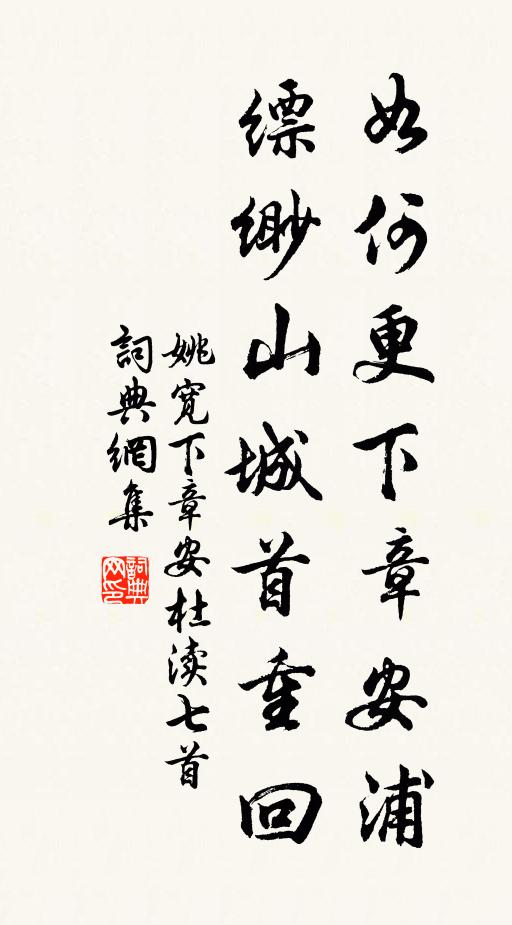 如何更下章安浦
縹緲山城首重回
姚寬下章安杜渎七首
詞典網集
詞典网印